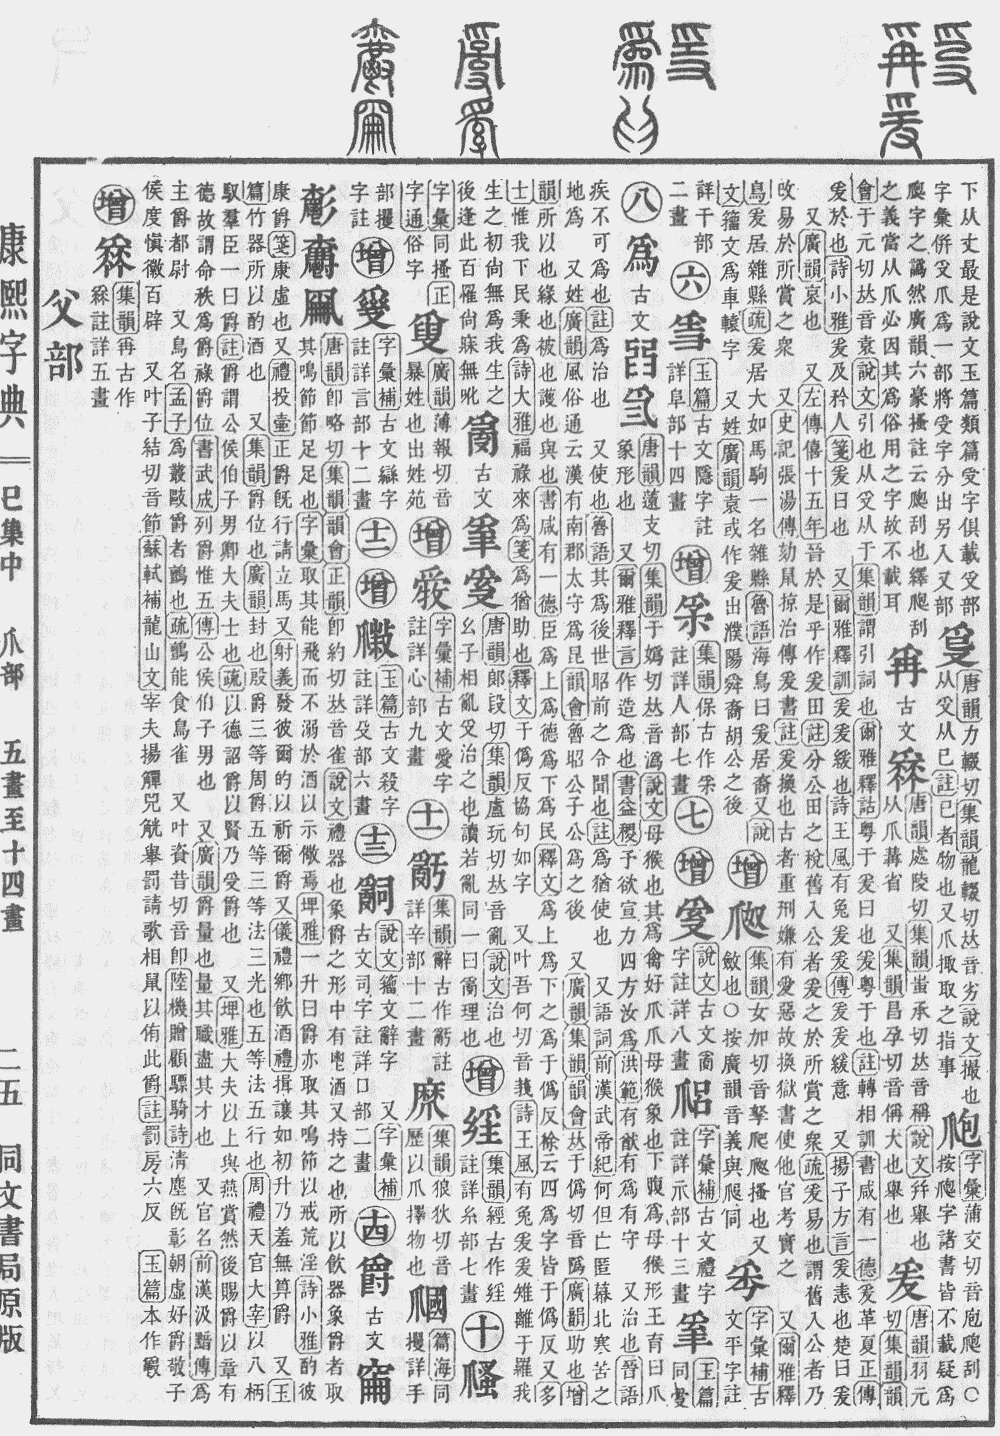 下从丈最是說文玉篇類篇受字俱載𠬪部
字彙倂𠬪爪爲一部將受字分出另入又部
唐韻力輟切集韻龍輟切𠀤音劣說文撮也
从𠬪从已註已者物也又爪掫取之指事
字彙蒲交切音庖爮刮○
按爮字諸書皆不載疑爲
爮字之譌然廣韻六豪搔註云爮刮也繹爮刮
之義當从爪必因其爲俗用之字故不載耳
古文
唐韻處陵切集韻蚩承切𠀤音稱說文幷舉也
从爪冓省 又集韻昌孕切音稱大也舉也
爰
唐韻羽元
切集韻韻
會于元切𠀤音袁說文引也从𠬪从于集韻謂引詞也爾雅釋詁粤于爰曰也爰粤于也註轉相訓書咸有一德爰革夏正傳
爰於也詩小雅爰及矜人箋爰曰也 又爾雅釋訓爰爰緩也詩王風有兔爰爰傳爰爰緩意 又揚子方言爰恚也楚曰爰
又廣韻哀也 又左傳僖十五年晉於是乎作爰田註分公田之稅舊入公者爰之於所賞之衆疏爰易也謂舊入公者乃
改易於所賞之衆 又史記張湯傳劾鼠掠治傳爰書註爰換也古者重刑嫌有愛惡故換獄書使他官考實之 又爾雅釋
鳥爰居雜縣疏爰居大如馬駒一名雜縣魯語海鳥曰爰居裔又說
文籀文爲車轅字 又姓廣韻袁或作爰出濮陽舜裔胡公之後
增
集韻女加切音拏爬爮搔也又
㪉也○按廣韻音義與爮同
字彙補古
文平字註
詳干部
二畫
六
玉篇古文隱字註
詳阜部十四畫
增
集韻保古作
註詳人部七畫
七
增
說文古文
字註詳八畫
字彙補古文禮字
註詳示部十三畫
玉篇
同愛
八
爲
古文
唐韻薳支切集韻于嬀切𠀤音潙說文母猴也其爲禽好爪爪母猴象也下腹爲母猴形王育曰爪
象形也 又爾雅釋言作造爲也書益稷予欲宣力四方汝爲洪範有猷有爲有守 又治也晉語
疾不可爲也註爲治也 又使也魯語其爲後世昭前之令聞也註爲猶使也 又語詞前漢武帝紀何但亡匿幕北寒苦之
地爲 又姓廣韻風俗通云漢有南郡太守爲昆韻會魯昭公子公爲之後 又廣韻集韻韻會𠀤于僞切音僞廣韻助也增
韻所以也緣也被也護也與也書咸有一德臣爲上爲德爲下爲民釋文爲上爲下之爲于僞反徐云四爲字皆于僞反又多
士惟我下民秉爲詩大雅福祿來爲箋爲猶助也釋文于僞反協句如字 又叶吾何切音莪詩王風有兔爰爰雉離于羅我
生之初尚無爲我生之
後逢此百罹尚寐無吪
𤔔
古文
唐韻郎段切集韻盧玩切𠀤音亂說文治也
幺子相亂𠬪治之也讀若亂同一曰𤔔理也
增
集韻經古作
註詳糸部七畫
十
字彙同搔正
字通俗字
廣韻薄報切音
暴姓也出姓苑
增
字彙補古文愛字
註詳心部九畫
十一
集韻辭古作
註
詳辛部十二畫
集韻狼狄切音
歷以爪擇物也
篇海同
攫詳手
部攫
字註
增
字彙補古文䜌字
註詳言部十二畫
十二
增
玉篇古文殺字
註詳殳部六畫
十三
𤔲
說文籀文辭字 又字彙補
古文司字註詳口部二畫
十四
爵
古文
唐韻卽略切集韻韻會正韻卽約切𠀤音雀說文禮器也象爵之形中有鬯酒又持之也所以飮器象爵者取
其鳴節節足足也字彙取其能飛而不溺於酒以示儆焉埤雅一升曰爵亦取其鳴節以戒荒淫詩小雅酌彼
康爵箋康虛也又禮投壺正爵旣行請立馬又射義發彼爾的以祈爾爵又儀禮鄉飮酒禮揖讓如初升乃羞無算爵 又玉
篇竹器所以酌酒也 又集韻爵位也廣韻封也殷爵三等周爵五等三等法三光也五等法五行也周禮天官大宰以八柄
馭羣臣一曰爵註爵謂公侯伯子男卿大夫士也疏以德詔爵以賢乃受爵也 又埤雅大夫以上與燕賞然後賜爵以章有
德故謂命秩爲爵祿爵位書武成列爵惟五傳公侯伯子男也 又廣韻爵量也量其職盡其才也 又官名前漢汲黯傳爲
主爵都尉 又鳥名孟子爲叢敺爵者鸇也疏鸇能食鳥雀 又叶資昔切音卽陸機贈顧驃騎詩淸塵旣彰朝虛好爵敬子
侯度愼徽百辟 又叶子結切音節蘇軾補龍山文宰夫揚觶兕觥舉罰請歌相鼠以侑此爵註罰房六反 玉篇本作
增
集韻再古作
註詳五畫
父部
康熙字典
巳集中
爪部
五畫至十四畫
二五
同文書局原版